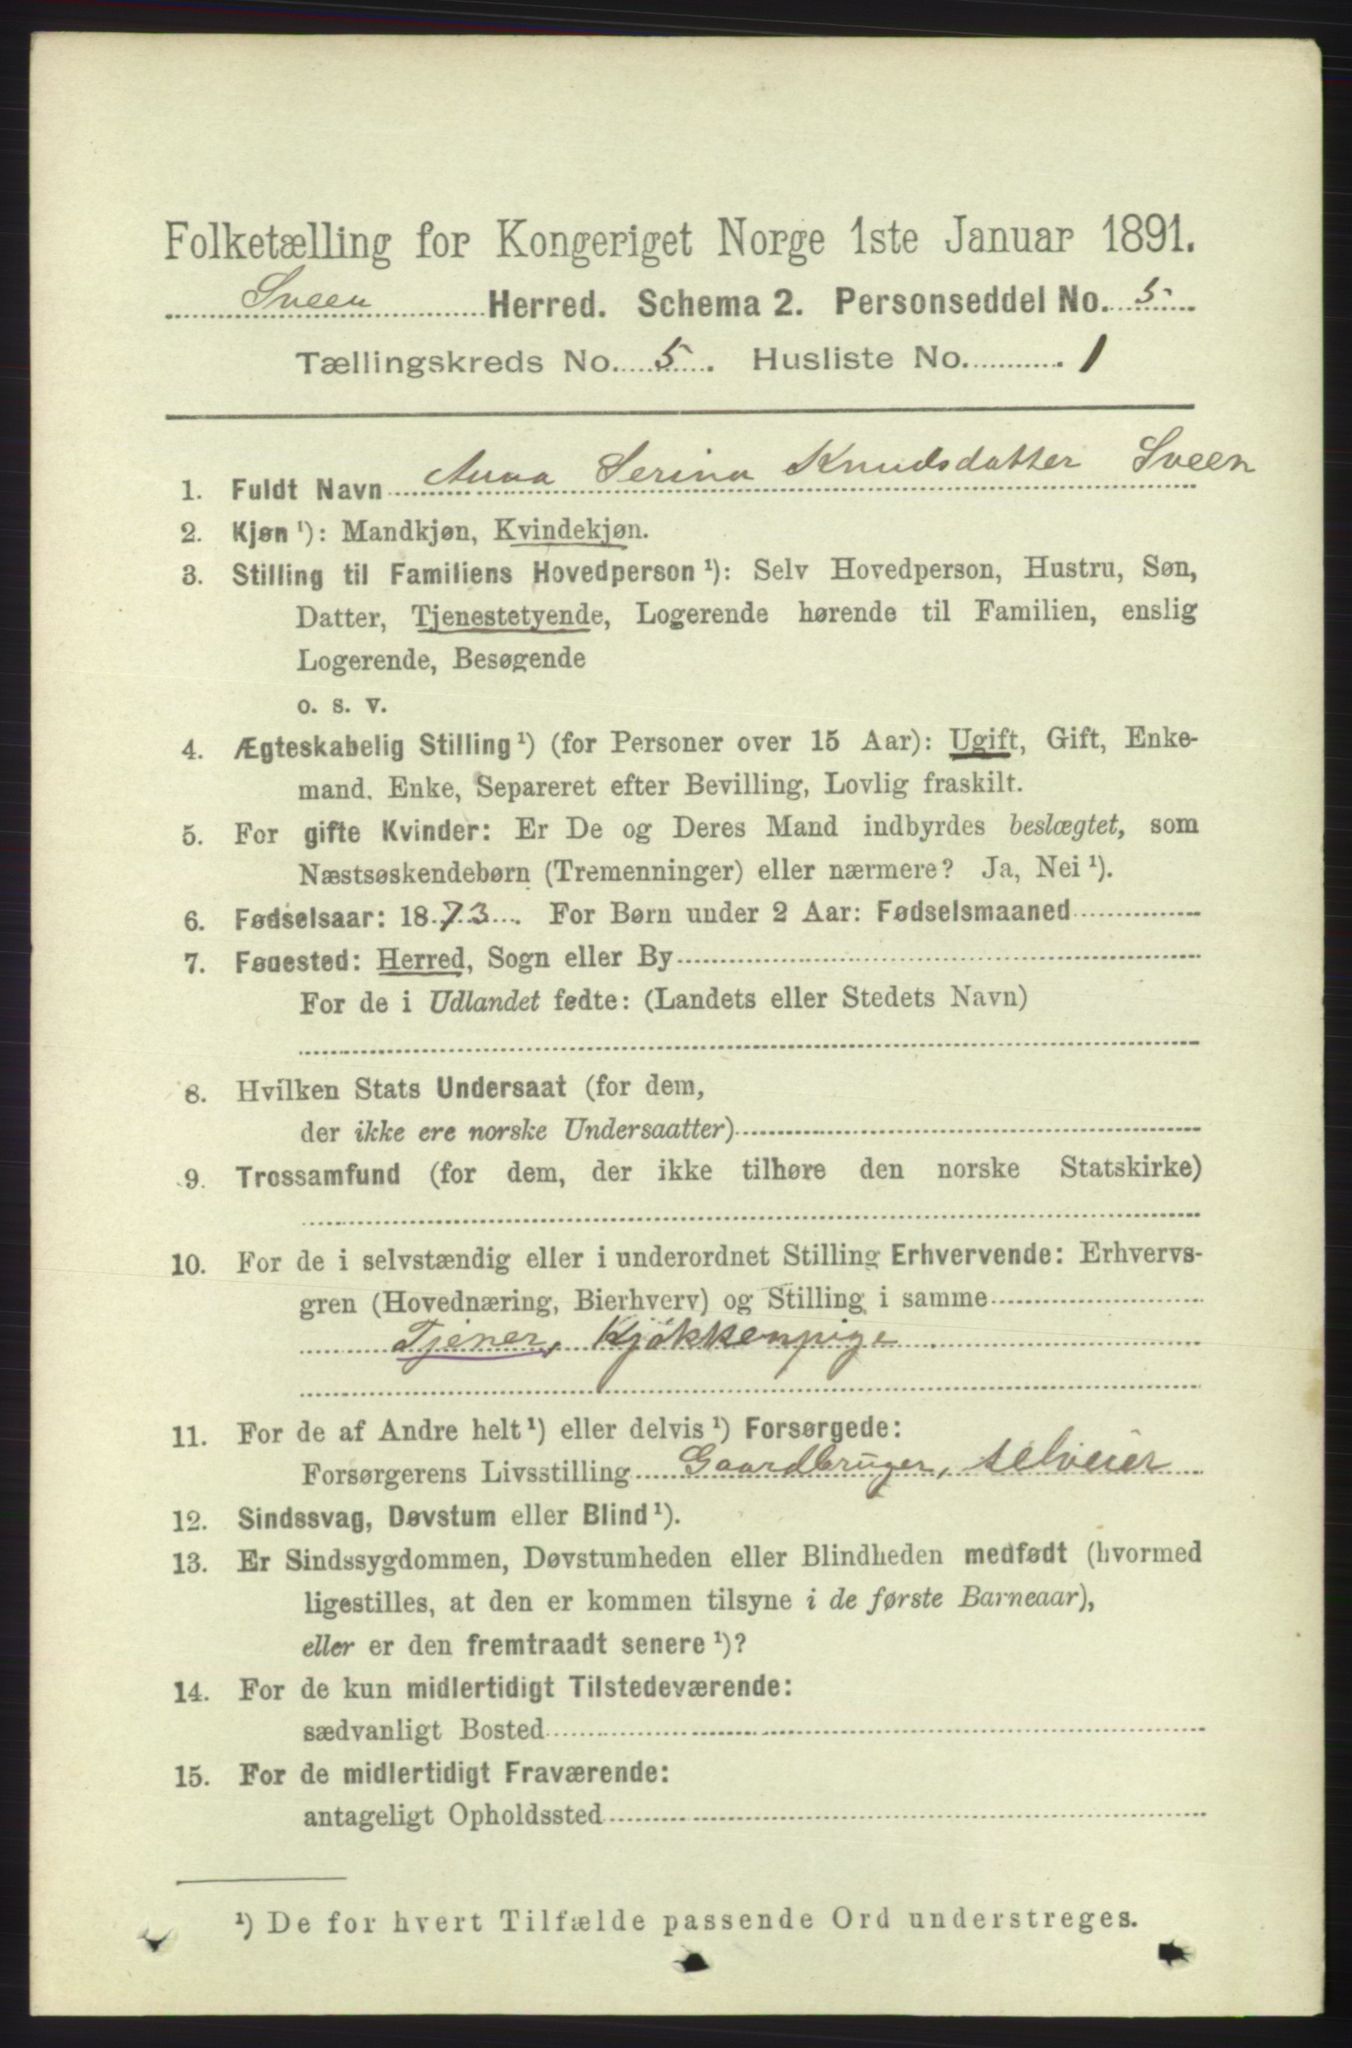 Folketælling for Kongeriget Norge 1ste Januar 1891.
Sveen Herred. Schema 2. Personseddel No. 5
Tællingskreds No. 5. Husliste No. 1
1. Fuldt Navn Anna Serina Knudsdatter Sveen
2. Kjøn ¹): Mandkjøn, Kvindekjøn.
3. Stilling til Familiens Hovedperson ¹): Selv Hovedperson, Hustru, Søn,
Datter, Tjenestetyende, Logerende hørende til Familien, enslig
Logerende, Besøgende
o. s. v.
4. Ægteskabelig Stilling ¹) (for Personer over 15 Aar): Ugift, Gift, Enke-
mand. Enke, Separeret efter Bevilling, Lovlig fraskilt.
5. For gifte Kvinder: Er De og Deres Mand indbyrdes beslægtet, som
Næstsøskendebørn (Tremenninger) eller nærmere? Ja, Nei ¹).
6. Fødselsaar: 1873. For Børn under 2 Aar: Fødselsmaaned
7. Føuested: Herred, Sogn eller By
For de i Udlandet fødte: (Landets eller Stedets Navn)
8. Hvilken Stats Undersaat (for dem,
der ikke ere norske Undersaatter)
9. Trossamfund (for dem, der ikke tilhøre den norske Statskirke)
10. For de i selvstændig eller i underordnet Stilling Erhvervende: Erhvervs-
gren (Hovednæring, Bierhverv) og Stilling i samme
Tjener, Kjøkkenpige
11. For de af Andre helt ¹) eller delvis ¹) Forsørgede:
Forsørgerens Livsstilling Gaardbruger, selveier
12. Sindssvag, Døvstum eller Blind ¹).
13. Er Sindssygdommen, Døvstumheden eller Blindheden medfødt (hvormed
ligestilles, at den er kommen tilsyne i de første Barneaar),
eller er den fremtraadt senere ¹)?
14. For de kun midlertidigt Tilstedeværende:
sædvanligt Bosted
15. For de midlertidigt Fraværende:
antageligt Opholdssted
¹) De for hvert Tilfælde passende Ord understreges.